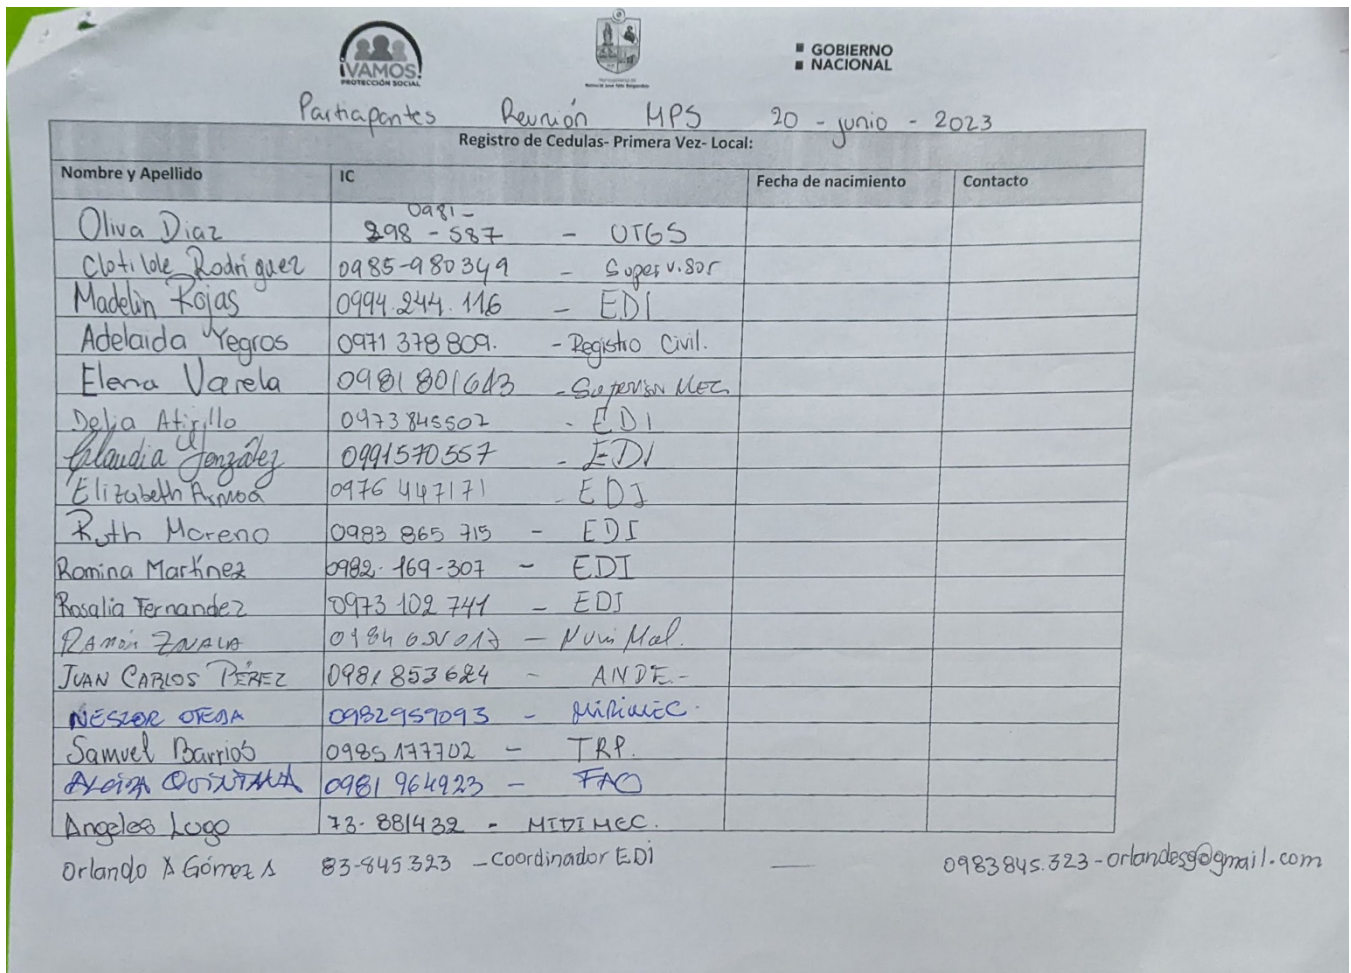 ¡VAMOS!
PROTECCIÓN SOCIAL
GOBIERNO
NACIONAL
Participantes Reunión MPS 20 - junio - 2023
Registro de Cedulas- Primera Vez- Local:
Nombre y Apellido IC Fecha de nacimiento Contacto
Oliva Diaz 0981-298-587 - UTGS
Clotilde Rodríguez 0985-980349 - Supervisor
Madelin Rojas 0994.244.116 - EDI
Adelaida Yegros 0971 378 809. - Registro Civil.
Elena Varela 0981 801643 - Supervisión MEC
Delia Atirillo 0973 845502 - EDI
Claudia González 0991570557 - EDI
Elizabeth Armoa 0976 447171 EDI
Ruth Moreno 0983 865 715 - EDI
Romina Martínez 0982-169-307 - EDI
Rosalia Fernandez 0973 102 741 - EDI
Ramón
JUAN CARLOS PÉREZ 0981 853624 - ANDE.-
NESTOR 0982959093 -
Samuel Barrios 0985 177702 - TRP.
QUINTANA 0981 964923 - FAO
Angeles Lugo 73-881432 - MIDIMEC.
Orlando Gómez A 83-845.323 - Coordinador EDI — 0983845.323-orlandesg@gmail.com